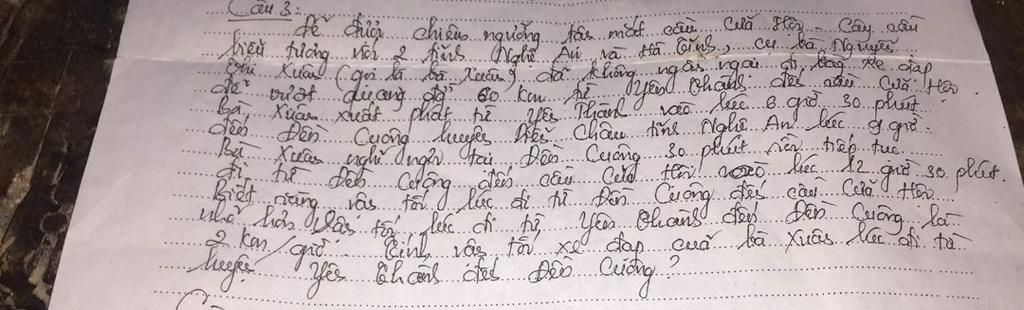 Câu 3:
Để được chiêm ngưỡng tận mắt cầu Cửa Hội - Cây cầu
biểu tượng với 2 tỉnh Nghệ An và Hà Tĩnh, cụ bà Nguyễn
Thị Xuân (gọi là bà Xuân) đã không ngần ngại đi bằng xe đạp
để vượt quãng đg 60 km từ Yên Thành đến cầu Cửa Hội.
Bà Xuân xuất phát từ Yên Thành vào lúc 6 giờ 30 phút
đến Đền Cuông huyện Diễn Châu tỉnh Nghệ An lúc 9 giờ.
Bà Xuân nghỉ ngơi tại Đền Cuông 30 phút rồi tiếp tục
đi từ Đền Cuông đến cầu Cửa Hội lúc 12 giờ 30 phút.
Biết rằng vận tốc lúc đi từ Đền Cuông đến cầu Cửa Hội
nhỏ hơn vận tốc lúc đi từ Yên Thành đến Đền Cuông là
2 km/giờ. Tính vận tốc xe đạp của bà Xuân lúc đi từ
huyện Yên Thành đến Đền Cuông?